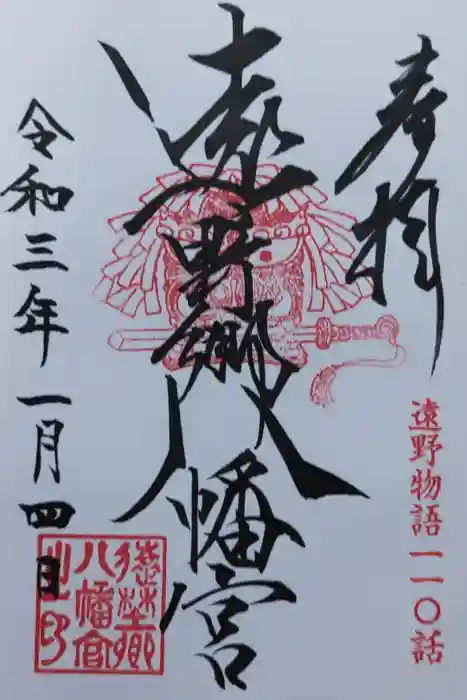 奉拝
遠野物語一一〇話
遠野郷八幡宮
令和三年一月四日
遠野郷
八幡宮